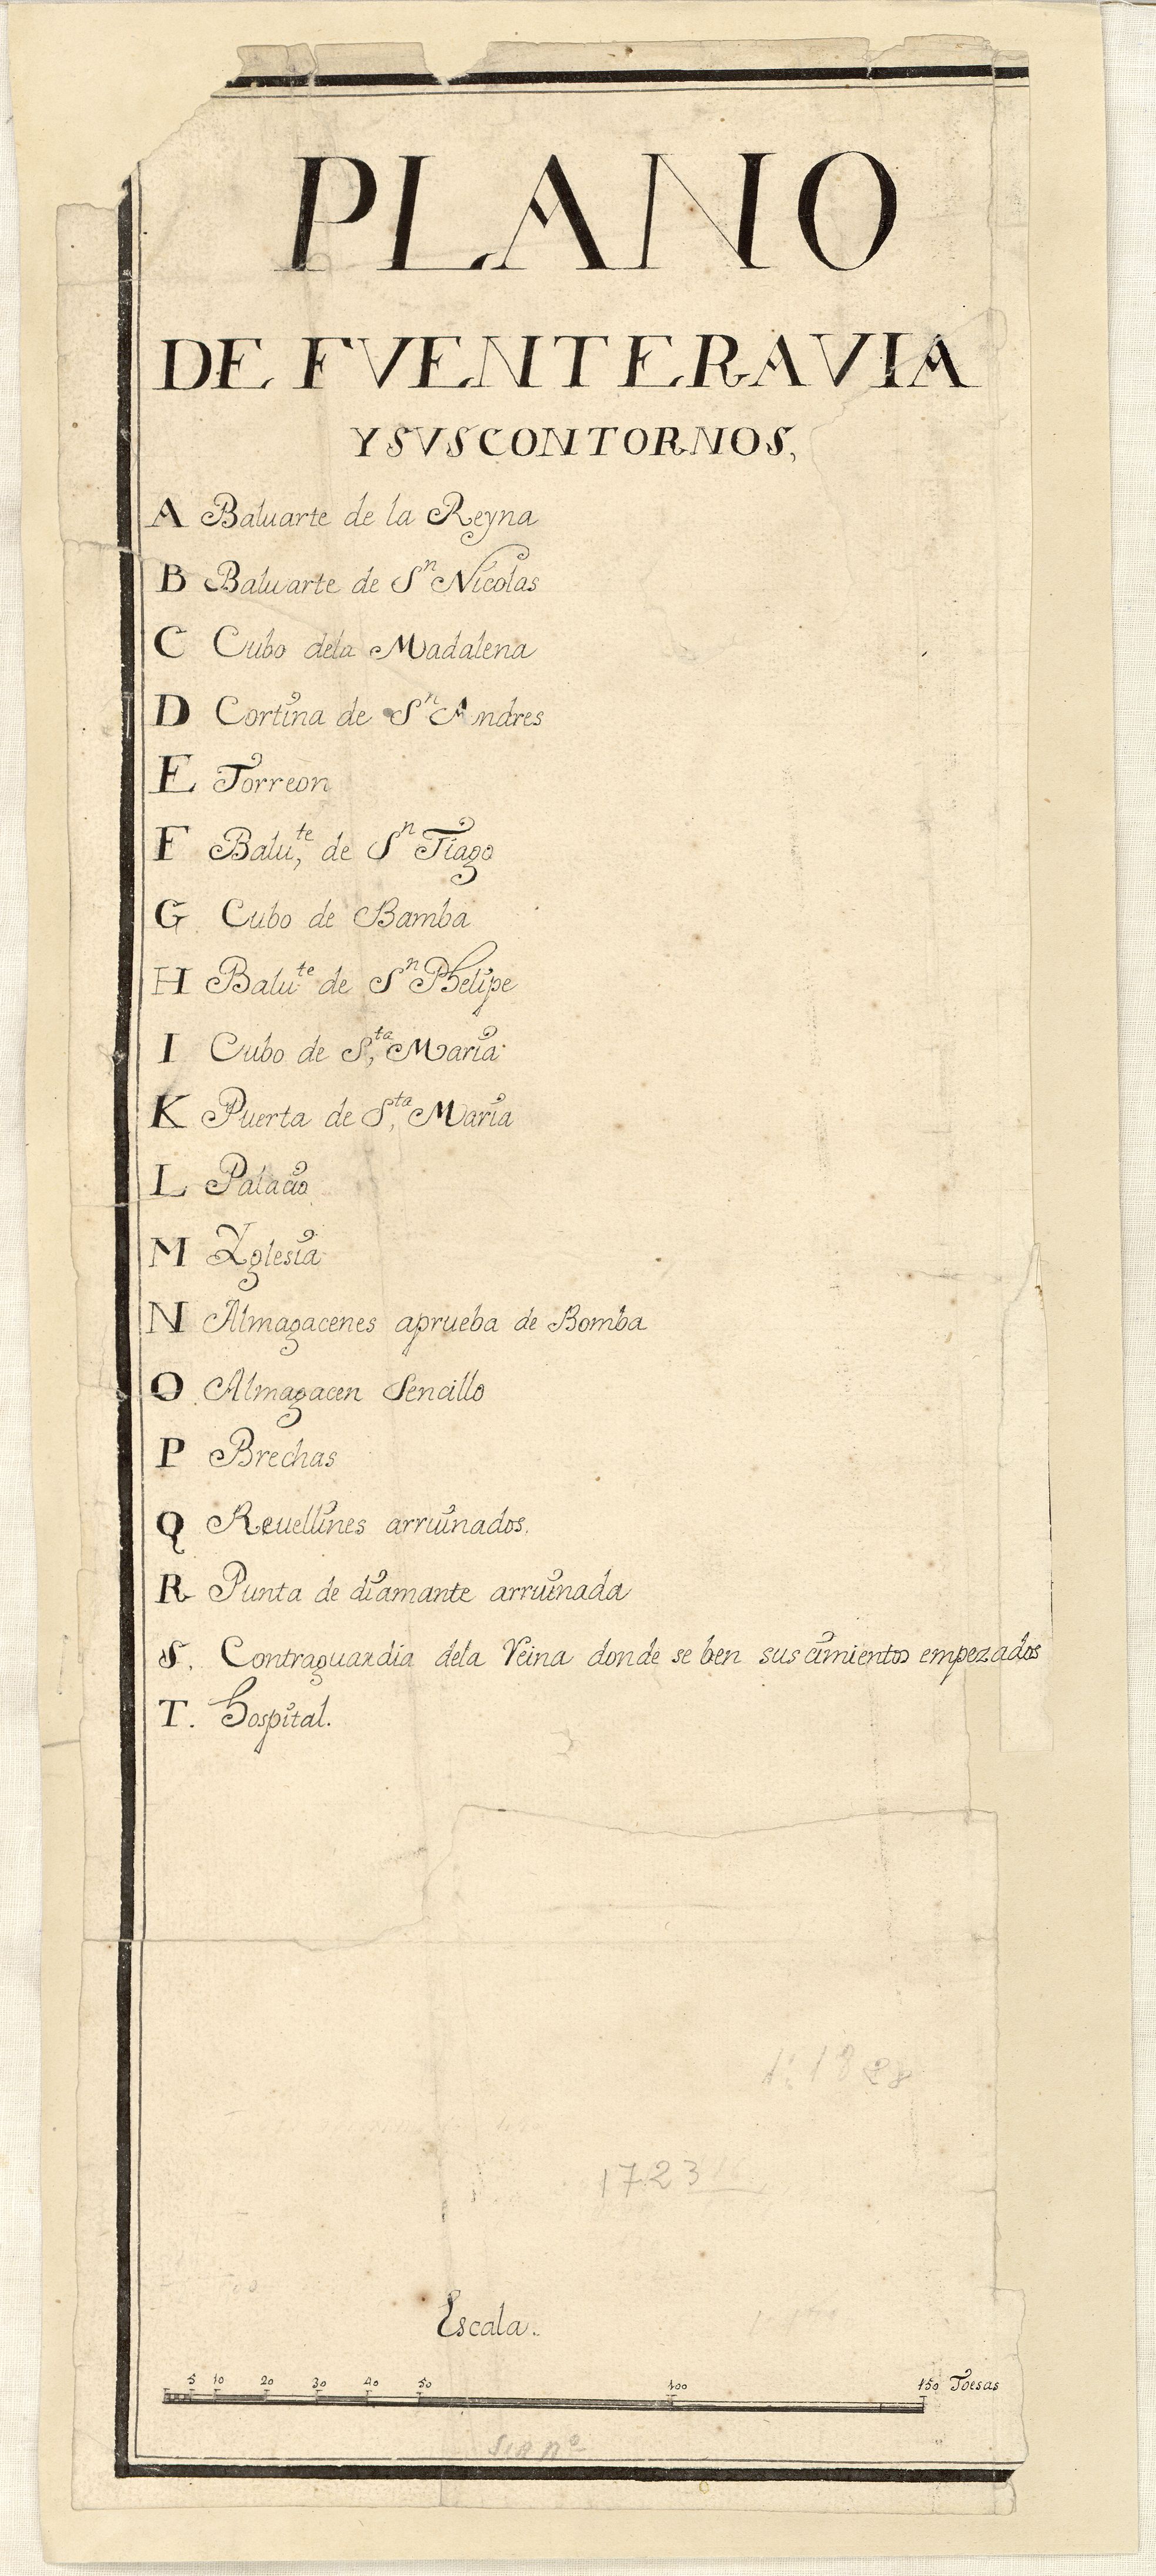 PLANO
DE FVENTERAVIA
Y SVS CONTORNOS,
A Baluarte de la Reyna
B Baluarte de Sn Nicolas
C Cubo dela Madalena
D Cortina de Sn Andres
E Torreon
F Balu,te de Sn Tiago
G Cubo de Bamba
H Balu.te de Sn Phelipe
I Cubo de S,ta Maria
K Puerta de S,ta Maria
L Palacio
M Yglesia
N Almagacenes aprueba de Bomba
O Almagacen Sencillo
P Brechas
Q Reuellines arruinados.
R Punta de diamante arruinada
S. Contraguardia dela Reina donde se ben sus cimientos empezados
T. Hospital.
1723
Escala.
5 10 20 30 40 50 100 150 Toesas
Sin nº